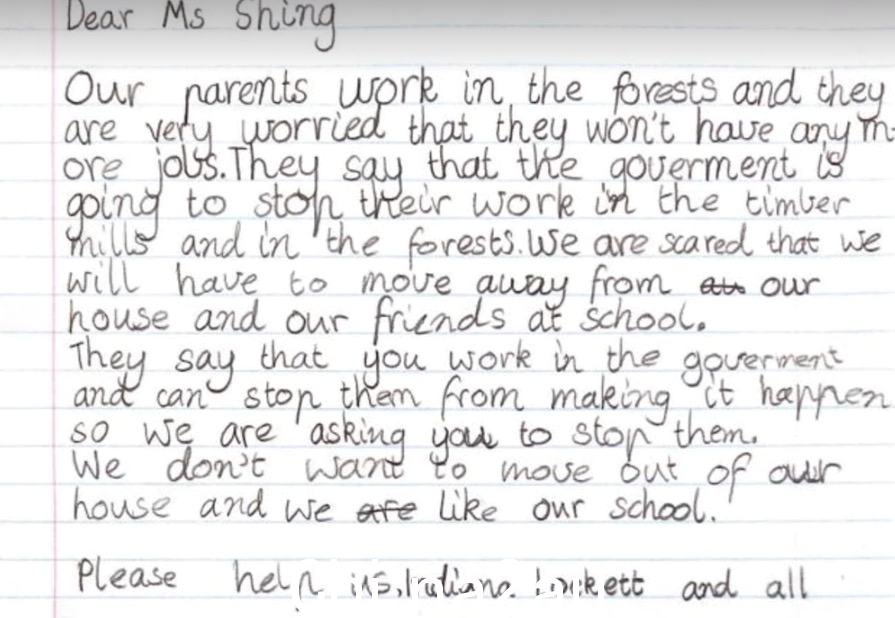 Dear Ms Shing
Our parents work in the forests and they
are very worried that they won't have anym-
ore jobs. They say that the goverment is
going to stop their work in the timber
mills and in the forests. We are scared that we
will have to move away from our
house and our friends at school.
They say that you work in the goverment
and can stop them from making it happen
so we are asking you to stop them.
We don't want to move out of our
house and we are like our school.
Please help us, and all